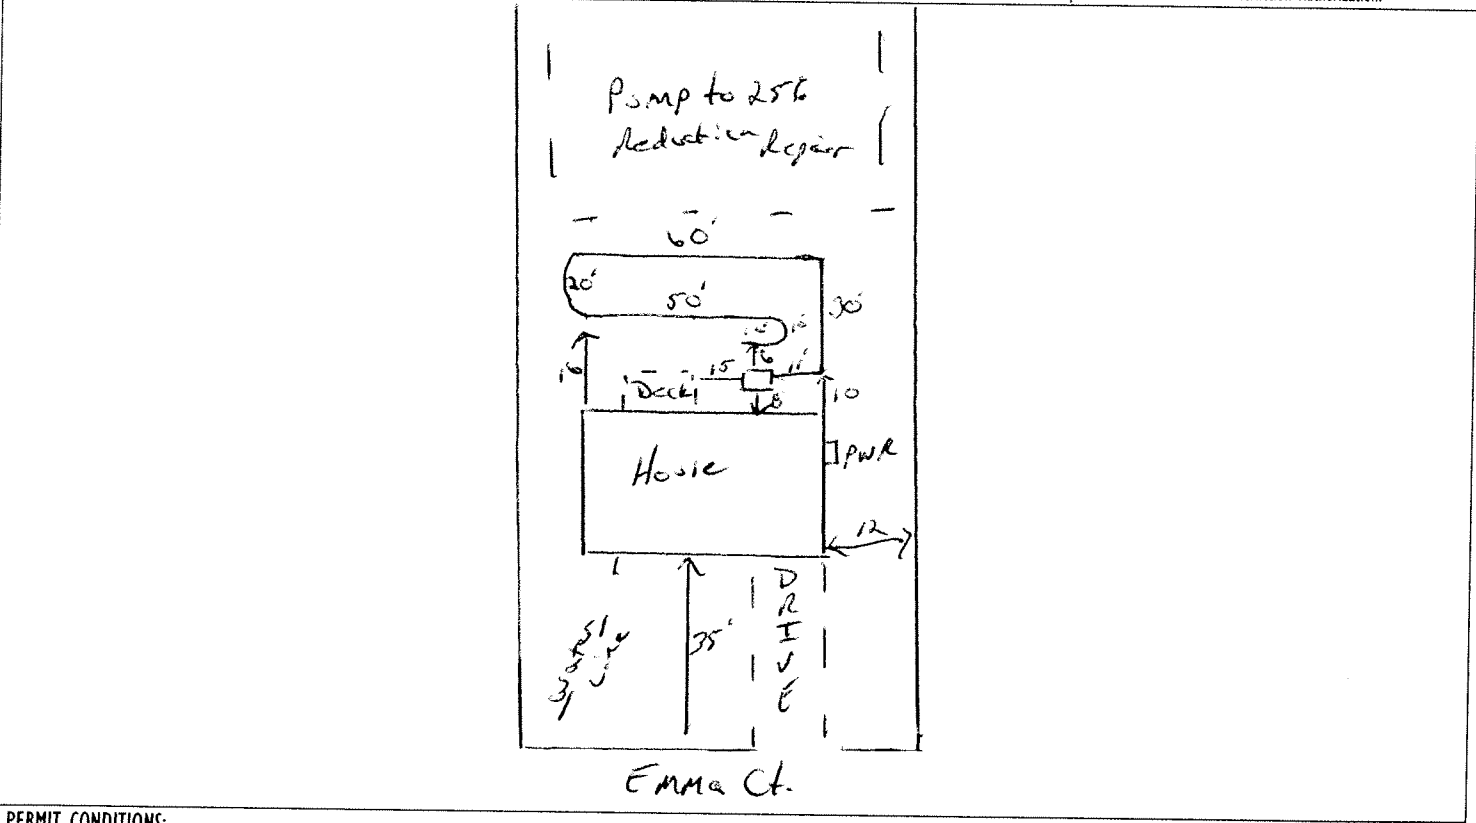 Pump to 25%
Reduction Repair
60'
20'
50'
30'
10'
6
16
15
11'
Deck
8
10
House
PWR
12
DRIVE
35'
Water
Line
Emma Ct.
PERMIT CONDITIONS: